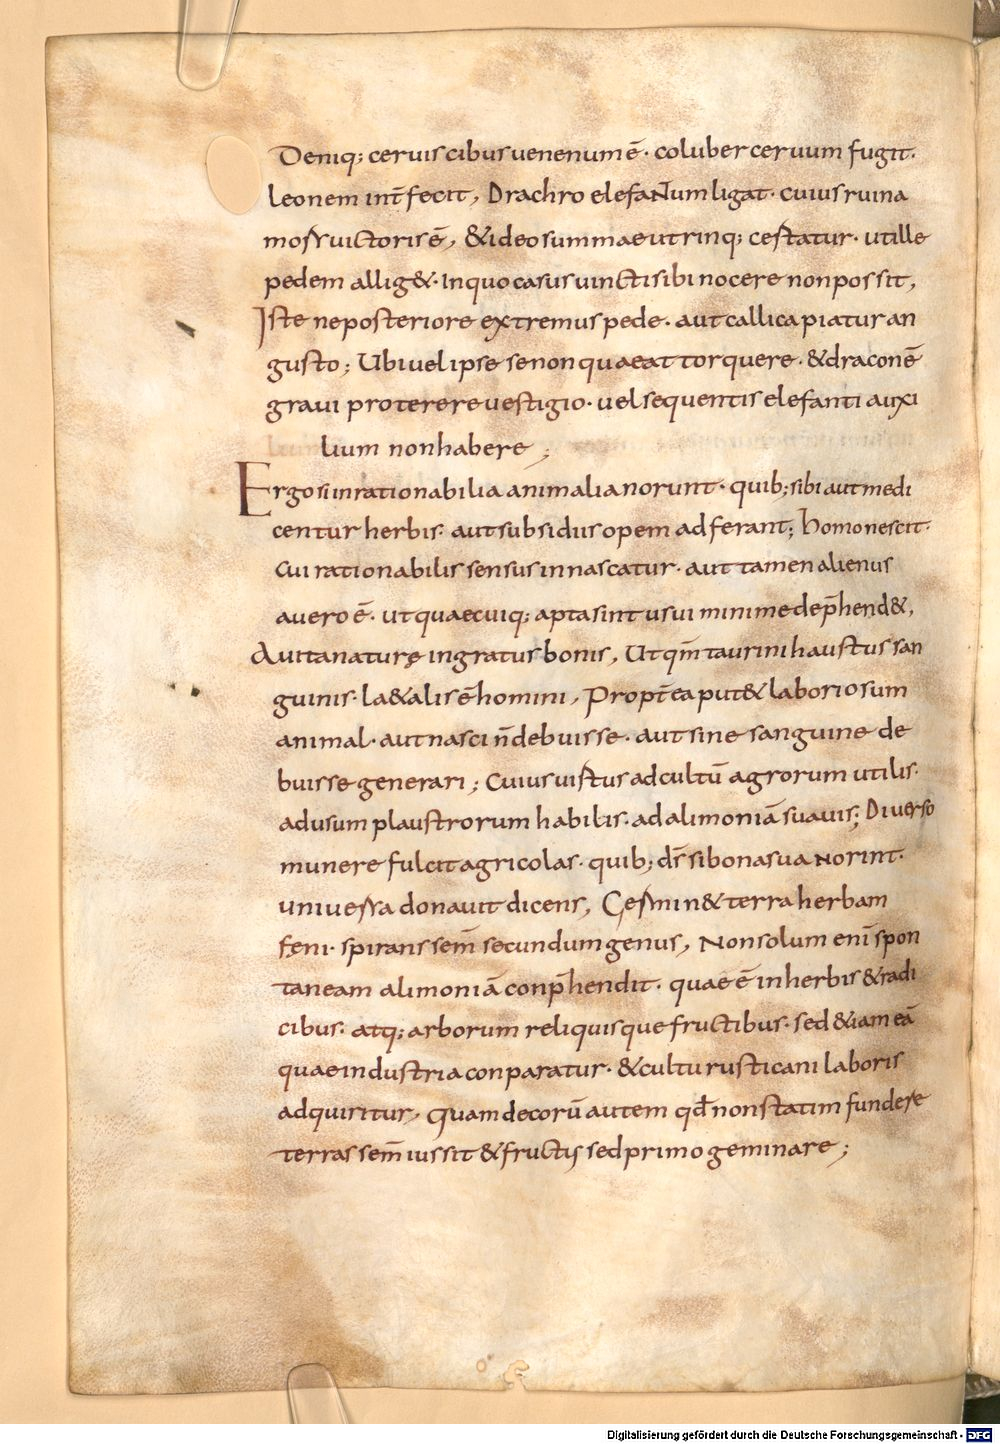 Deniq; ceruis cibus uenenum ē· coluber ceruum fugit·
leonem int̄fecit, Drachro elefantum ligat· cuius ruina
mors uictoris ē, & ideo summae utrinq; cestatur· ut ille
pedem allig&· In quo casus uincti sibi nocere non possit,
Iste ne posteriore extremus pede· aut callica piatur an
gusto; Ubi uel ipse se non quaeat torquere· & draconē
graui proterere uestigio· uel sequentis elefanti auxi
lium non habere;
Ergo si inrationabilia animalia norunt· quib; sibi aut medi
centur herbis· aut subsidiis opem adferant; homo nescit·
cui rationabilis sensus innascatur· aut tamen alienus
a uero ē· ut quaecuiq; apta sint usui minime dep̄hend&,
Aut ita naturę ingratus bonis, Ut qm̄ taurini haustus san
guinis· l&alis ē homini, Propt̄ea put& laboriosum
animal· aut nasci n̄ debuisse· aut sine sanguine de
buisse generari; Cuius uistus ad cultū agrorum utilis·
ad usum plaustrorum habilis· ad alimoniā suauis; Diuerso
munere fulcit agricolas· quib; ds̄ si bona sua norint·
uniuersa donauit dicens, Germin& terra herbam
fęni· spirans sem̄ secundum genus, Non solum enī spon
taneam alimoniā conp̄hendit· quae ē in herbis & radi
cibus· atq; arborum reliquisque fructibus· sed &iam eā
quae industria conparatur· & cultu rusticani laboris
adquiritur, quam decorū autem qđ non statim fundere
terras sem̄ iussit & fructis sed primo geminare;
Digitalisierung gefördert durch die Deutsche Forschungsgemeinschaft - DFG